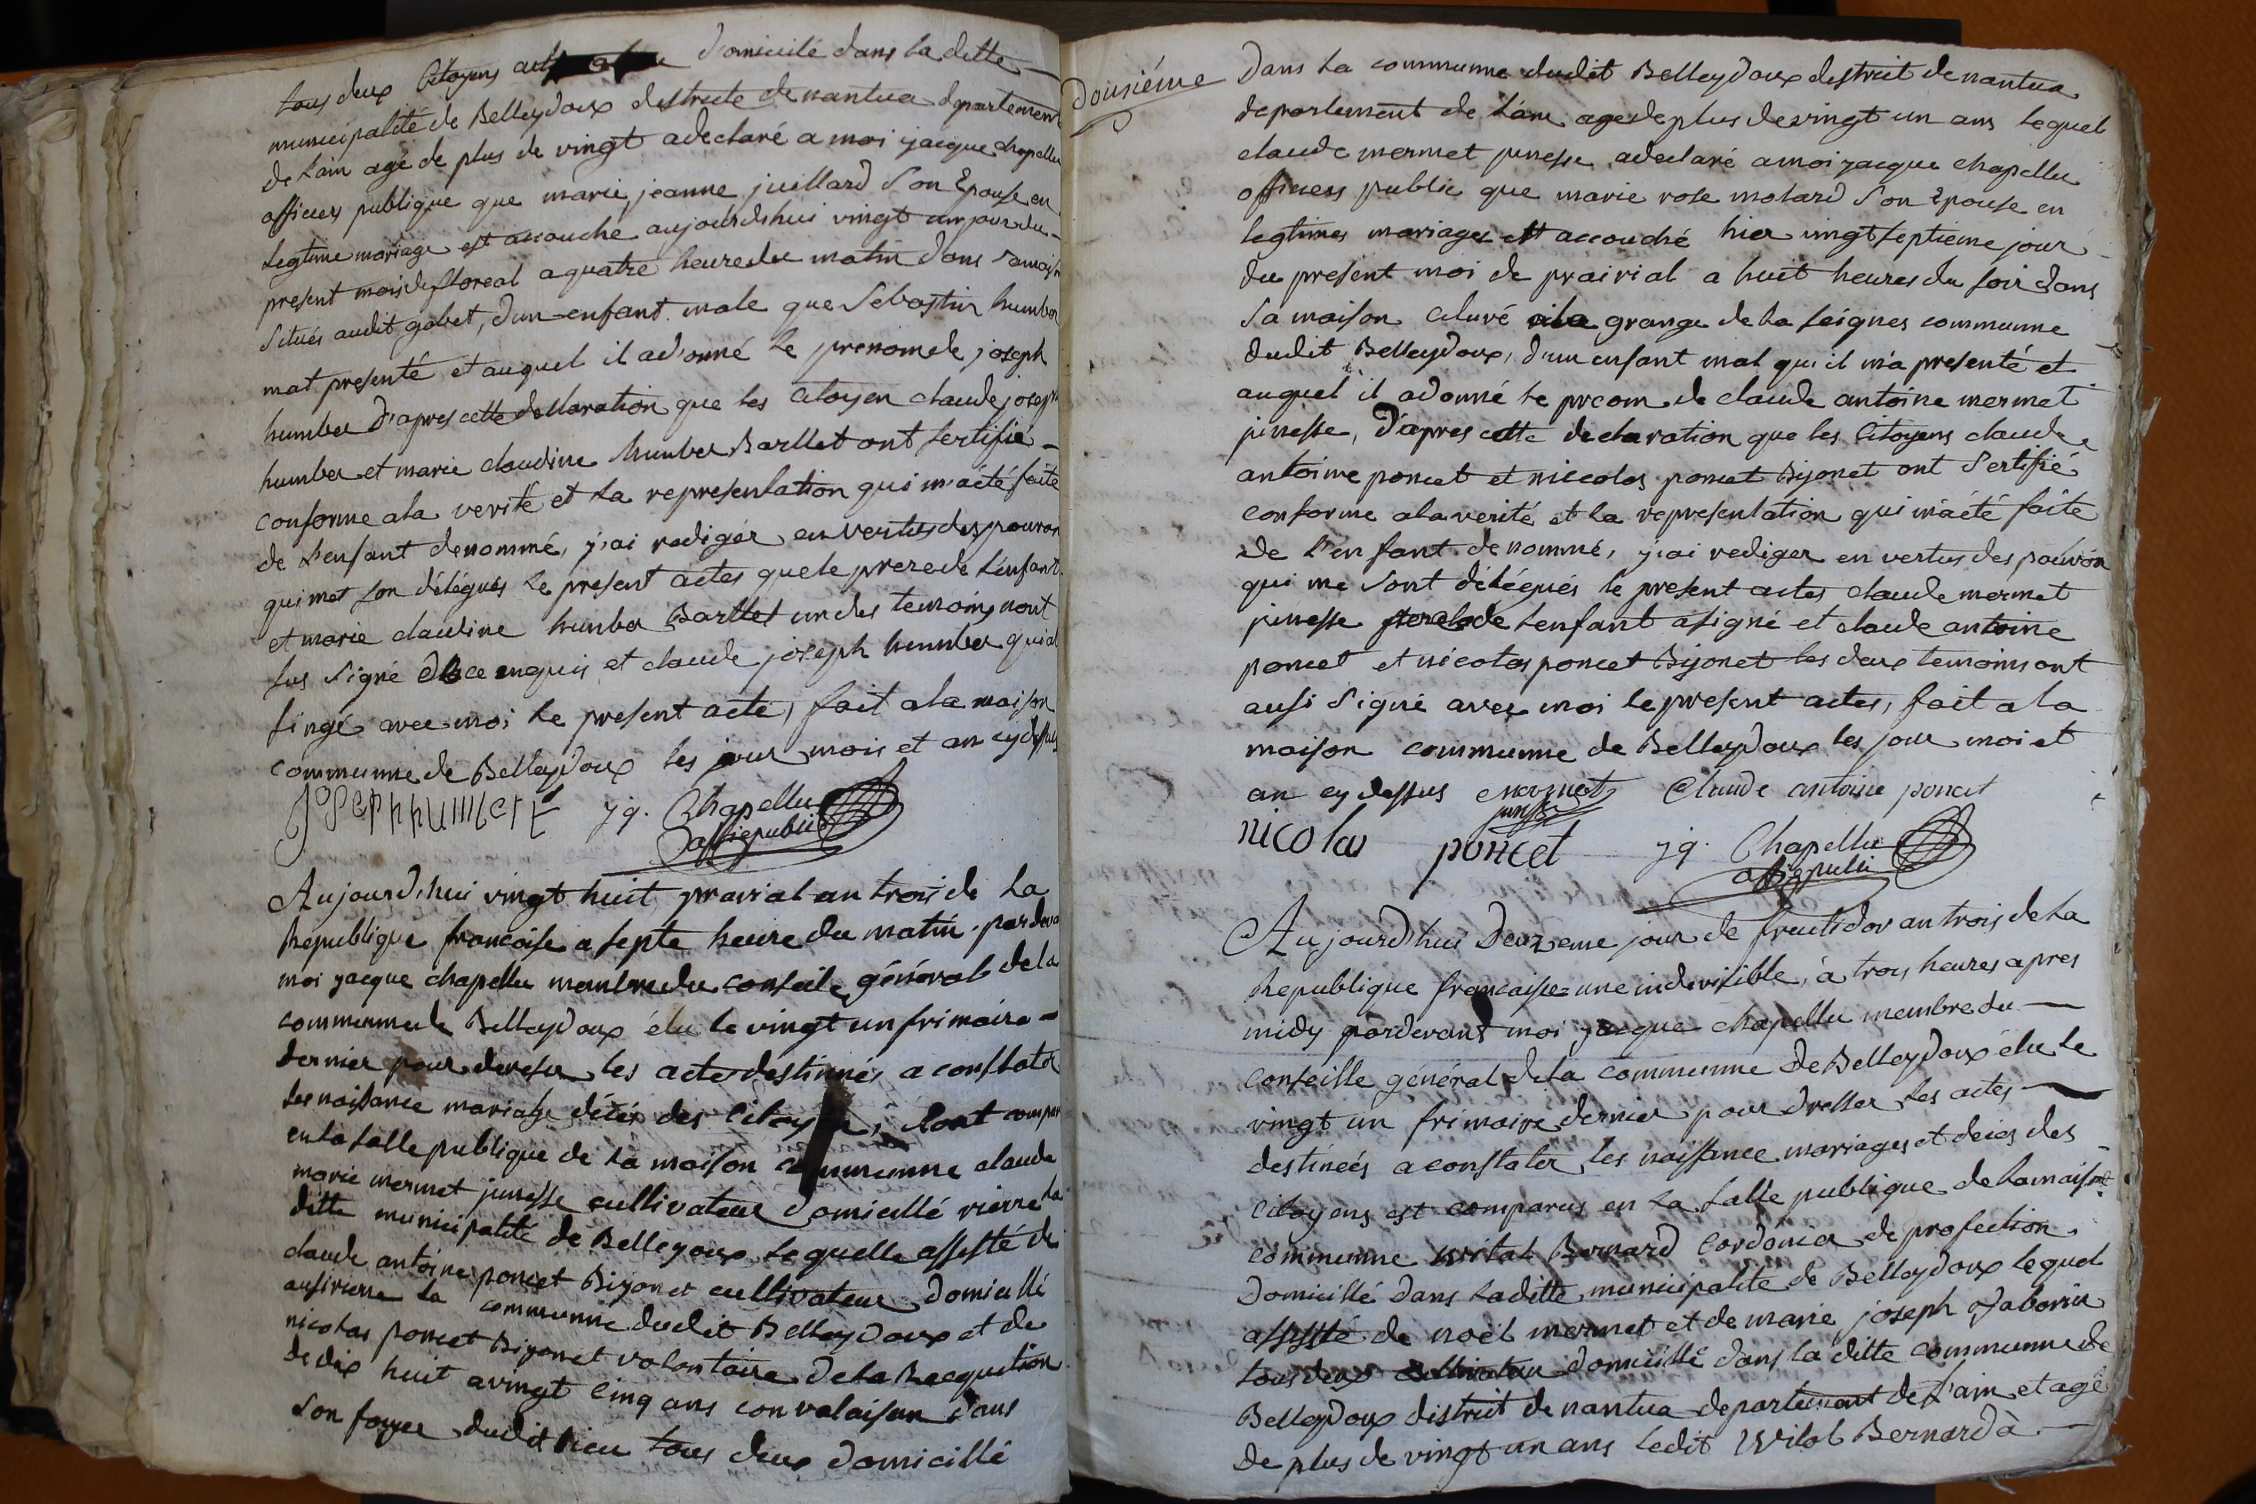 tous deux Citoyens domicilé dans la ditte
municipalité de Belleydoux destricte de nantua departement
de Lain agé de plus de vingt a declaré a moi jacque chapellu
officiers publique que marie jeanne juillard Son Epouse en
Legtime mariage est accouché aujourdshui vingt un jour du
present mois de floreal a quatre heure du matin dans sa maison
Situés audit gobet, dun enfant male que Sebastin humber
mat presenté et auquel il a donné le prenom de joseph
humber d'apres cette dellaration que les Citoyen claude joseph
humber et marie claudine humber Barllet ont sertifié
conforme a la verité et la representation qui m'a été faite
de L'enfant denommé, j'ai rediger en vertus des pouvoir
qui met son délégués le present actes que le prere de Lenfant
et marie claudine humber Barllet un des temoins nont
sus Signé de ce enquis et claude joseph humber qui a
singé avec moi le present acte, fait a la maison
communne de Belleydoux les jour mois et an cy dessus
jq. Chapellu
offi publie
Aujourd'hui vingt huit prairial an trois de La
Republique francoise a septe heure du matin pardeva
moi jacque chapellu membre du conseile général de la
communne de Belleydoux élu le vingt un frimaire
dernier pour dresser les acte destinnés a constater
les naissance mariage décés des Citoyens, sont compar
en la salle publique de la maison communne claude
marie mermet junesse cultivateur domicillé rierre la
ditte municipalité de Belleydoux lequelle assisté de
claude antoine poncet Bijonet cultivateur domicillé
ausi rierre La communne dudit Belleydoux et de
nicolas poncet Bijonet volontaire de la Recquetion
de dix huit a vingt Cinq ans convalaisan dans
Son foyer dudit lieu tous deux domicillé
dousiéme
Dans La communne dudit Belleydoux destrict de nantua
departement de Lain agés de plus de vingt un ans lequel
claude mermet junesse a declaré a moi jacque chapellu
officiers public que marie rose molard Son Epouse en
legtimes mariages est accouché hier vingt septieme jour
du present moi de prairial a huit heures du soir dans
Sa maison a la grange de la seignes communne
dudit Belleydoux, d'un enfant mal qui il m'a presenté et
auquel il a donné le prenom de claude antoine mermet
junesse, d'apres cette declaration que les Citoyens claude
antoine poncet et niccolas poncet Bijonet ont Sertifié
conforme a la verité et la representation qui m'a été faite
de l'enfant denommé, j'ai rediger en vertus des pouvoir
qui me sont délégués le present actes claude mermet
junesse pere de lenfant a signé et claude antoine
poncet et nicolas poncet Bijonet les deux temoins ont
ausi Signé avec moi le present actes, fait a la
maison communne de Belleydoux les jour moi et
an cy dessus mermet junesse Claude antoine poncet
nicolas poncet jq. Chapellu
offi publi
Aujourd'hui Deuzeme jour de fructidor an trois de La
Republique francaise une indivisible, à trois heures apres
midy pardevant moi jacque chapellu membre du
conseille général de la communne de Belleydoux élu le
vingt un frimaire dernier pour dresser les actes
destineés a constater les naissance mariages et deces des
Citoyens est comparus en La salle publique de la maison
communne Wital Bernard Cordonier de profection
Domicillé dans la ditte municipalité de Belleydoux lequel
assisté de noël mermet et de marie joseph
tous deux cultivateur domicillé dans la ditte communne de
Belleydoux district de nantua departement de L'ain et agé
de plus de vingt un ans ledit Wital Bernard à